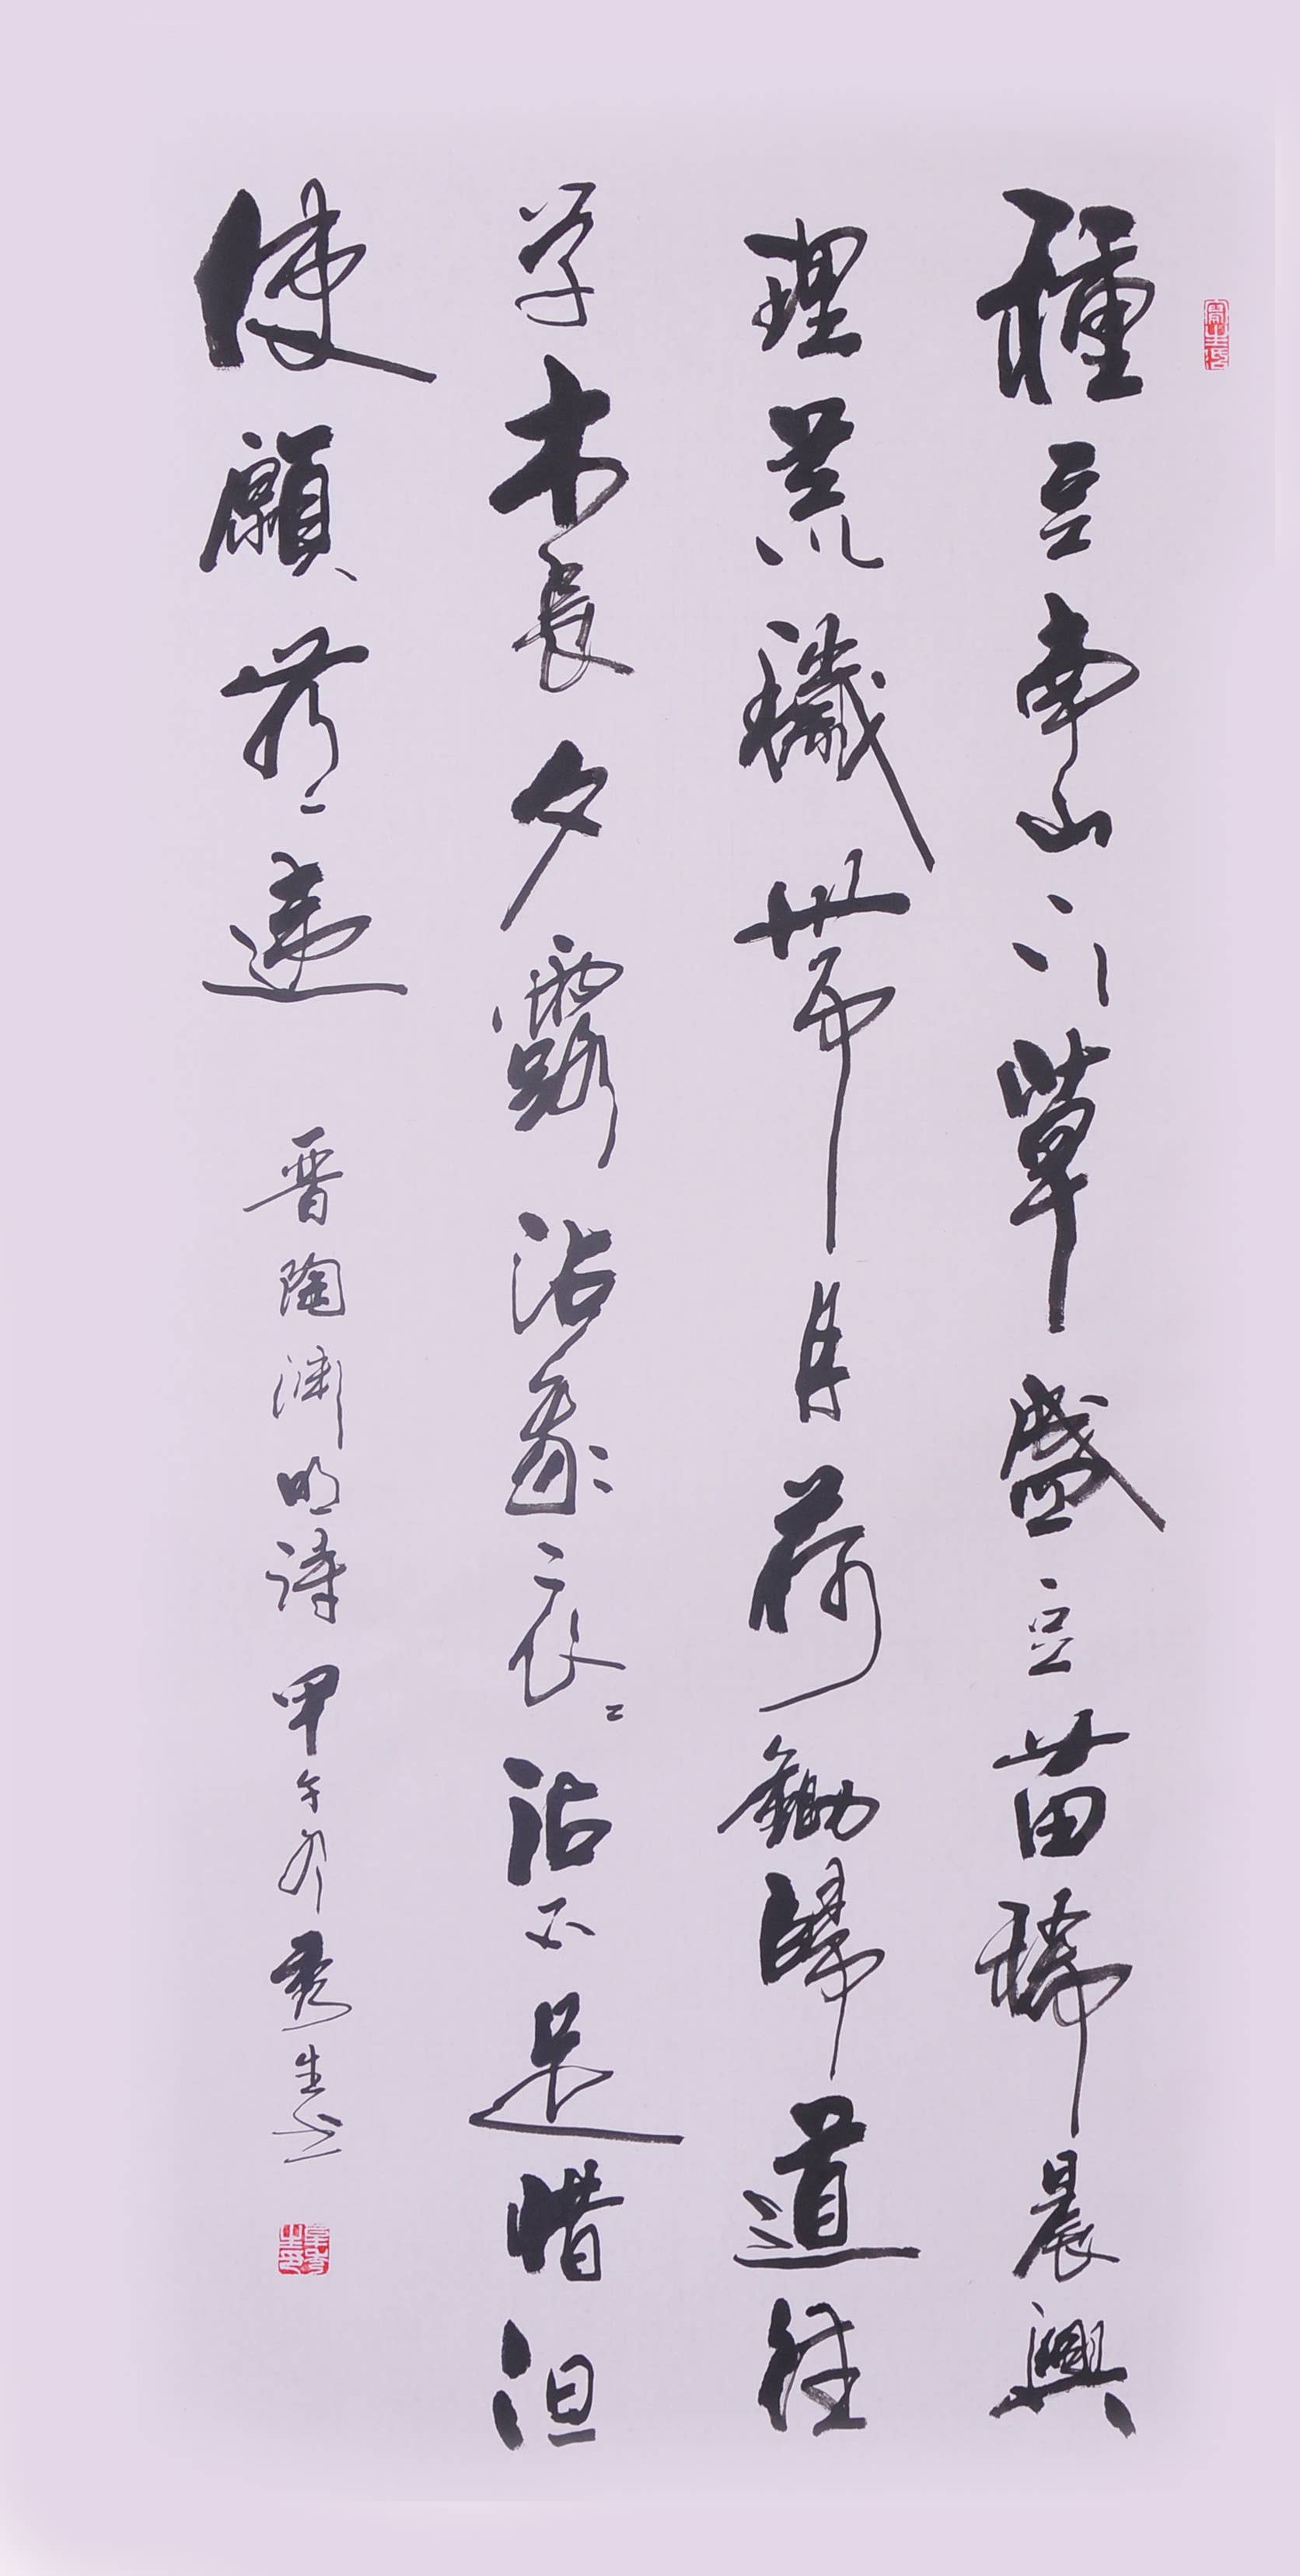 種豆南山下草盛豆苗稀晨興
理荒穢帶月荷鋤歸道狹
草木長夕露沾我衣々沾不足惜但
使願無違
晋陶淵明詩甲午秀生書